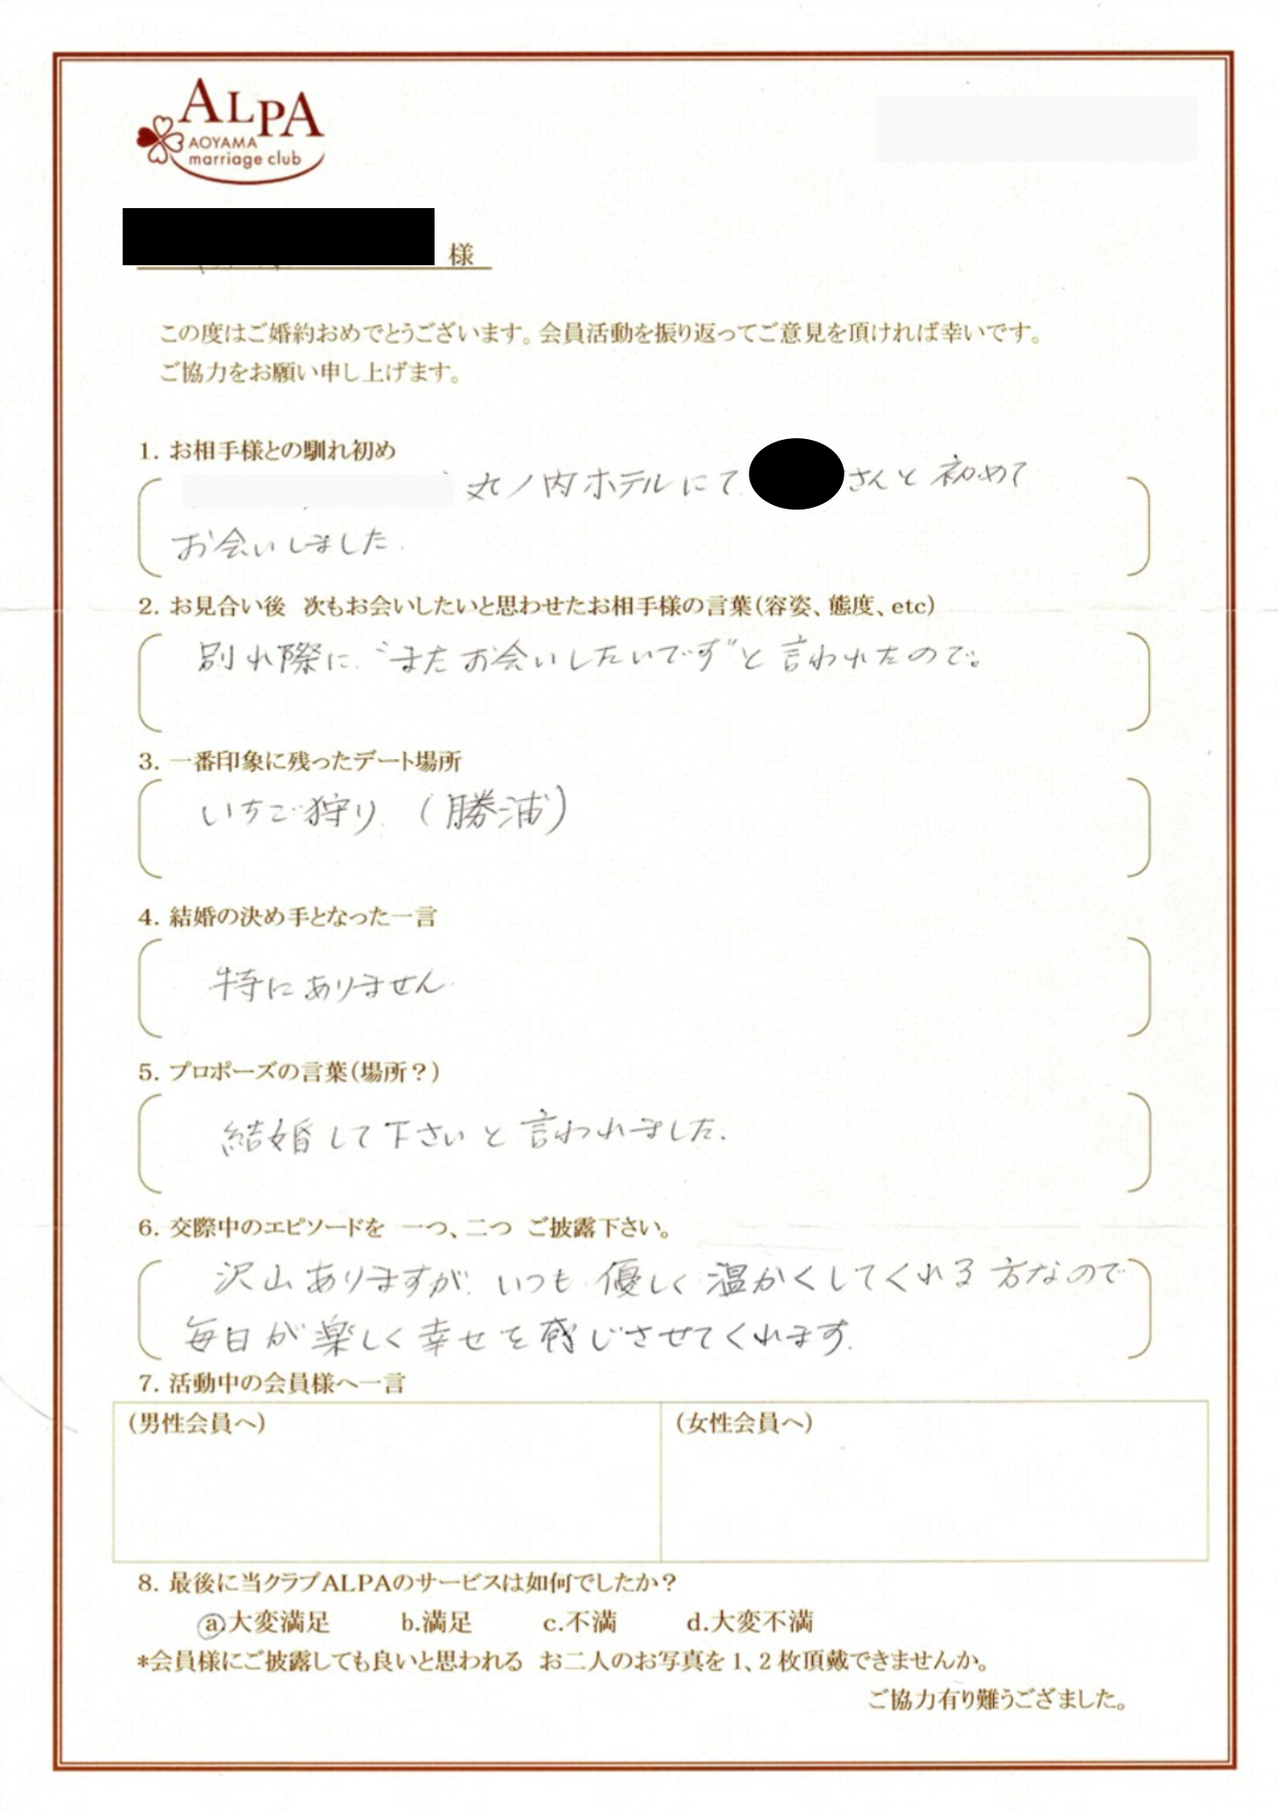 ALPA
AOYAMA
marriage club
様
この度はご婚約おめでとうございます。会員活動を振り返ってご意見を頂ければ幸いです。
ご協力をお願い申し上げます。
1. お相手様との馴れ初め
丸ノ内ホテルにて さんと初めて
お会いしました.
2. お見合い後 次もお会いしたいと思わせたお相手様の言葉(容姿、態度、etc)
別れ際に"またお会いしたいです"と言われたので。
3. 一番印象に残ったデート場所
いちご狩り (勝浦)
4. 結婚の決め手となった一言
特にありません
5. プロポーズの言葉(場所?)
結婚して下さいと言われました.
6. 交際中のエピソードを 一つ、二つ ご披露下さい。
沢山ありますが. いつも優しく温かくしてくれる方なので
毎日が楽しく幸せを感じさせてくれます.
7. 活動中の会員様へ一言
(男性会員へ) (女性会員へ)
8. 最後に当クラブALPAのサービスは如何でしたか?
a.大変満足 b.満足 c.不満 d.大変不満
*会員様にご披露しても良いと思われる お二人のお写真を1、2枚頂戴できませんか。
ご協力有り難うござました。